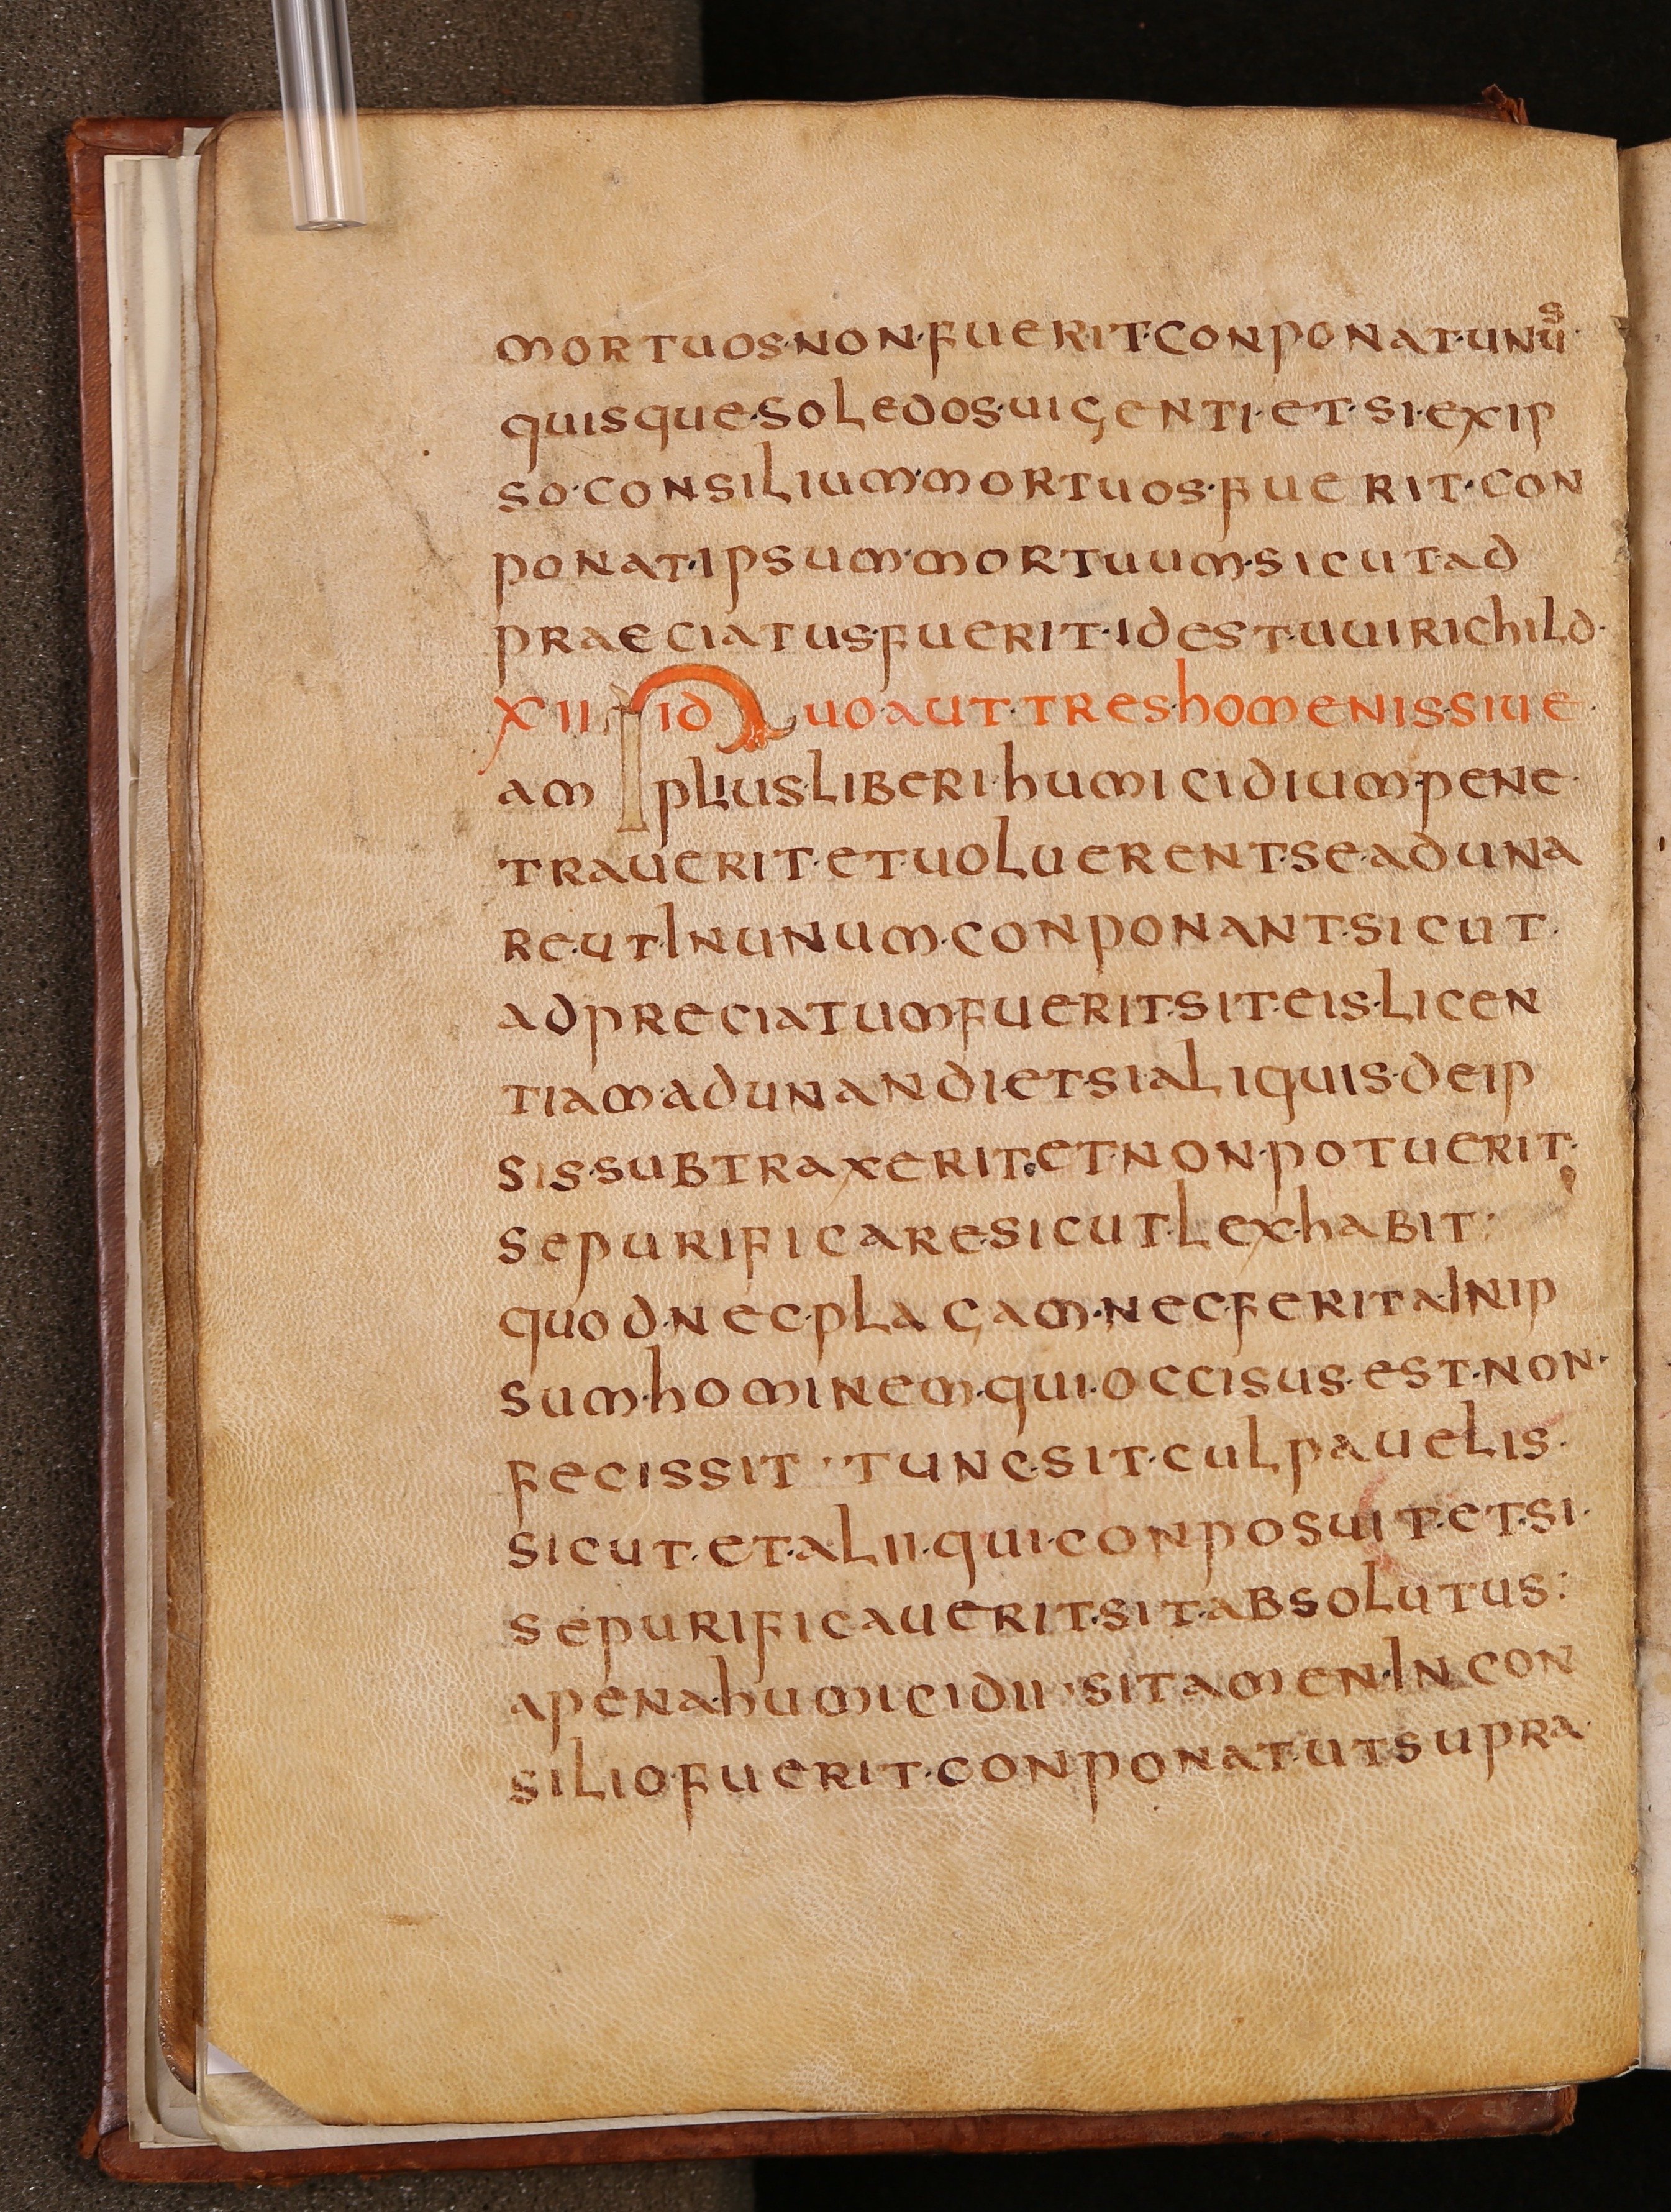 mortuos·non·fuerit·conponat·unus·
quisque·soledos·uigenti·et·si·exip
so·consilium·mortuos·fuerit·con
ponat·ipsum·mortuum·sicut ad
praeciatus fuerit·id est·uuirichild·
XII id Quo·aut·tres homenis siue·
am plius·liberi·humicidium·pene·
trauerit·et·uoluerent·se·aduna
re·ut In unum·conponant·sicut·
adpreciatum·fuerit·sit·eis·licen
tiam·adunandi et·si aliquis·de ip
sis·subtraxerit·et·non·potuerit·
se purificare·sicut·lex·habit:
quod·nec·plagam·nec·ferita·In ip
sum·hominem·qui·occisus·est·non·
fecissit·tunc·sit·culpauelis·
sicut·et·alii·qui·conposuit·et·si·
se purificauerit·sit·absolutus:
a pena·humicidii·si tamen·In con
silio·fuerit·conponat·ut supra·